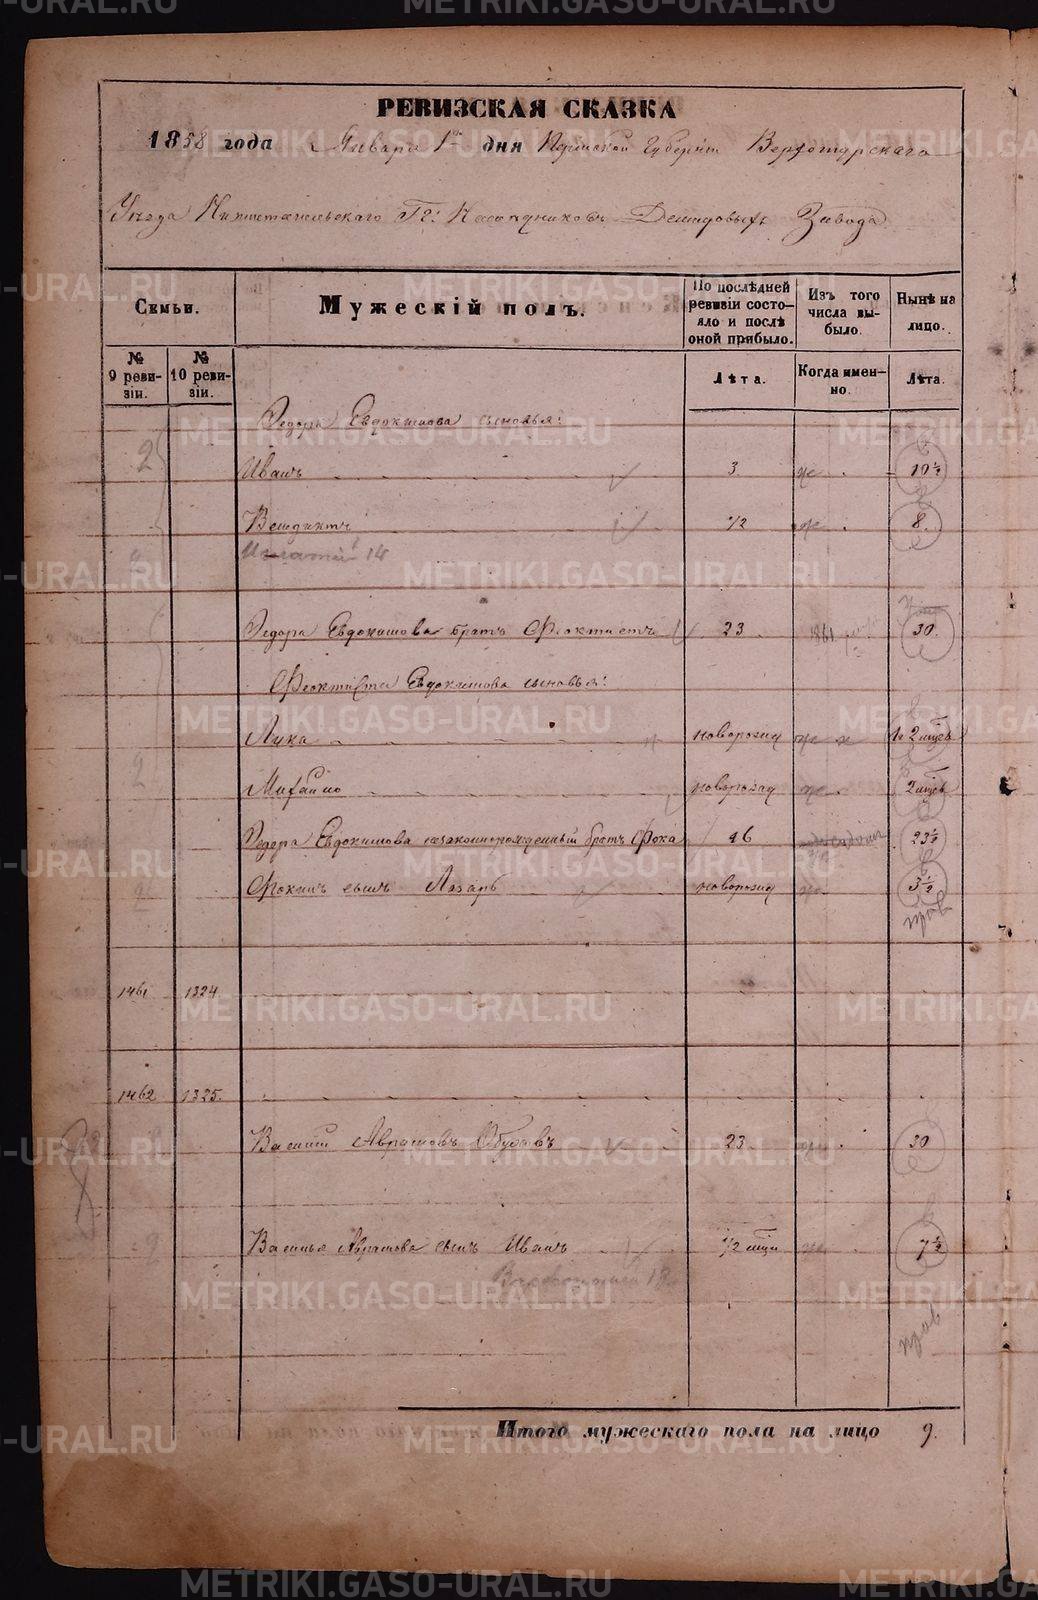 РЕВИЗСКАЯ СКАЗКА
1858 года Января 1го дня Пермской Губернiи Верхотурскаго
Уезда Нижнетагильскаго Гг: Наследниковъ Демидовыхъ Завода
Семьи.
Мужескiй полъ.
По послѣдней ревизiи состо-
яло и послѣ
оной прибыло.
Изъ того
числа вы-
было.
Нынѣ на
лицо.
№ 9 реви-
зiи.
№ 10 реви-
зiи.
Лѣта.
Когда имен-
но.
Лѣта.
Федора Евдокимова сыновья:
2 Иванъ 3 10½
Венедиктъ ½ 8.
14
Федора Евдокимова братъ Феоктистъ 23 1861 30.
Феоктиста Евдокимова сыновья:
Лука новорожд
2 Михайло новорожд
Федора Евдокимова незаконнорожденный братъ Фока 16 23½
2 Фокинъ сынъ Лазарь новорожд 3½
1461 1324
1462 1325.
Василiй Аврамовъ 23 30
2 Василья Аврамова сынъ Иванъ 7½
18
Итого мужескаго пола на лицо 9.
METRIKI.GASO-URAL.RU